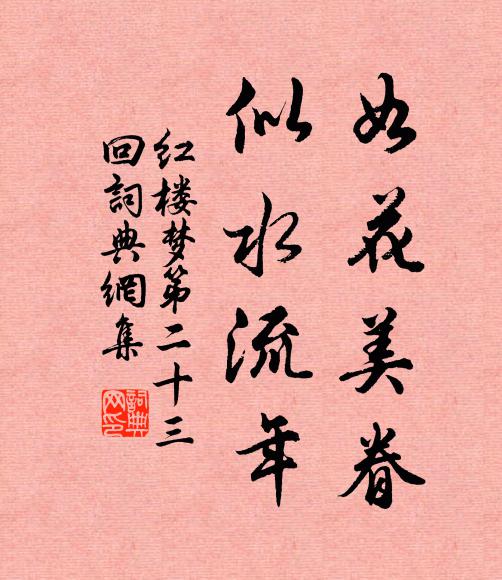 如花美眷
似水流年
红楼梦第二十三
回詞典網集
詞典网印